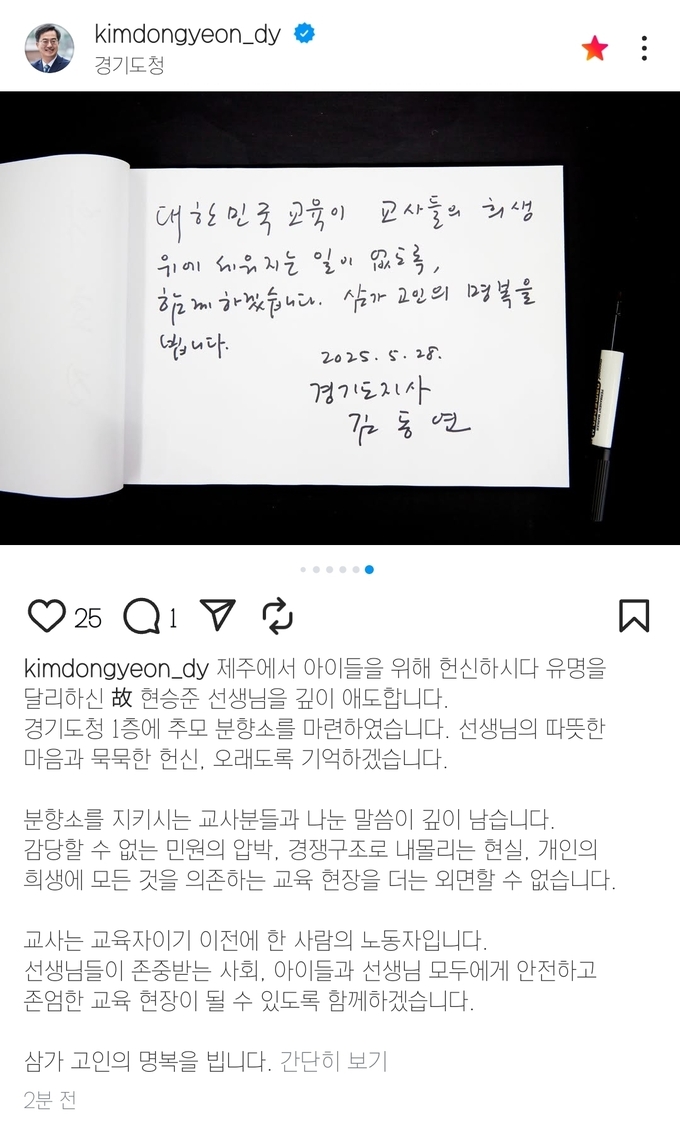 kimdongyeon_dy
경기도청
대한민국 교육이 교사들의 희생
위에 세워지는 일이 없도록,
함께하겠습니다. 삼가 고인의 명복을
빕니다.
2025. 5. 28.
경기도지사
김동연
25 1
kimdongyeon_dy 제주에서 아이들을 위해 헌신하시다 유명을
달리하신 故 현승준 선생님을 깊이 애도합니다.
경기도청 1층에 추모 분향소를 마련하였습니다. 선생님의 따뜻한
마음과 묵묵한 헌신, 오래도록 기억하겠습니다.
분향소를 지키시는 교사분들과 나눈 말씀이 깊이 남습니다.
감당할 수 없는 민원의 압박, 경쟁구조로 내몰리는 현실, 개인의
희생에 모든 것을 의존하는 교육 현장을 더는 외면할 수 없습니다.
교사는 교육자이기 이전에 한 사람의 노동자입니다.
선생님들이 존중받는 사회, 아이들과 선생님 모두에게 안전하고
존엄한 교육 현장이 될 수 있도록 함께하겠습니다.
삼가 고인의 명복을 빕니다. 간단히 보기
2분 전